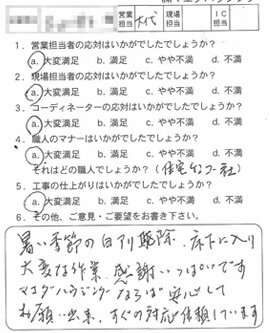 営業担当 大代 現場担当 ＩＣ担当
１．営業担当者の応対はいかがでしたでしょうか？
a. 大変満足 b. 満足 c. やや不満 d. 不満
２．現場担当者の応対はいかがでしたでしょうか？
a. 大変満足 b. 満足 c. やや不満 d. 不満
３．コーディネーターの応対はいかがでしたでしょうか？
a. 大変満足 b. 満足 c. やや不満 d. 不満
４．職人のマナーはいかがでしたでしょうか？
a. 大変満足 b. 満足 c. やや不満 d. 不満
それはどの職人でしょうか？（住宅ケンコー社）
５．工事の仕上がりはいかがでしたでしょうか？
a. 大変満足 b. 満足 c. やや不満 d. 不満
６．その他、ご意見・ご要望をお書き下さい。
暑い季節の白アリ駆除、床下に入り
大変な作業 感謝いっぱいです
マエダハウジングならば安心して
お願い出来、すぐの対応信頼しています